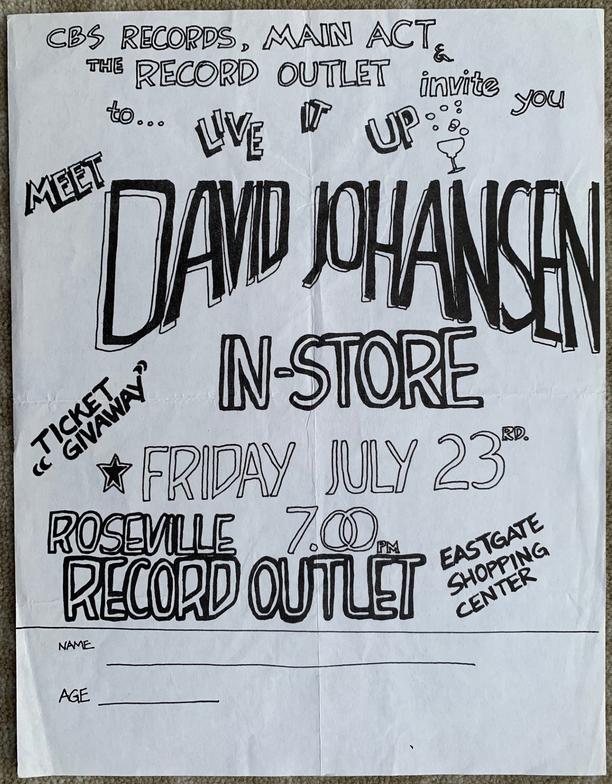 CBS RECORDS, MAIN ACT &
THE RECORD OUTLET invite you
to... LIVE IT UP
MEET
DAVID JOHANSEN
IN-STORE
"TICKET
GIVAWAY"
FRIDAY JULY 23RD.
ROSEVILLE 7.00PM
RECORD OUTLET
EASTGATE
SHOPPING
CENTER
NAME
AGE